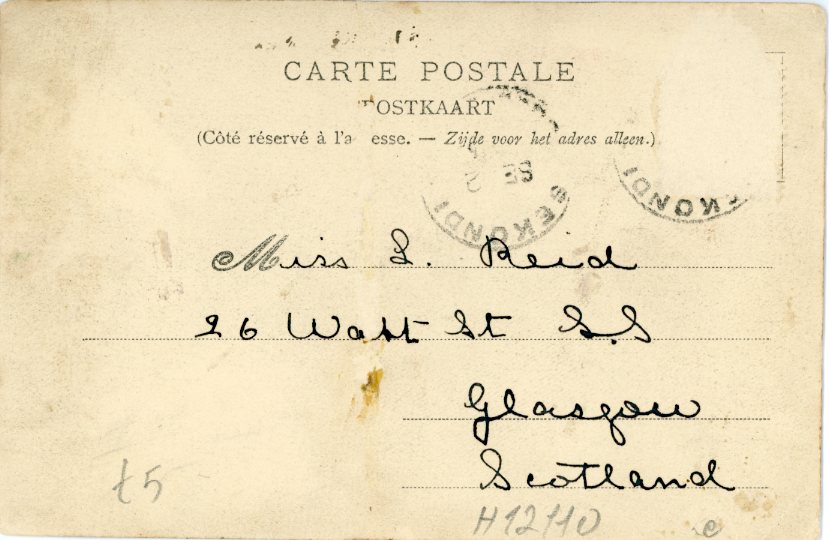 CARTE POSTALE
POSTKAART
(Côté réservé à l'a esse. — Zijde voor het adres alleen.)
SE 2
SEKONDI
EKONDI
Miss L. Reid
26 Watt St S.S
Glasgow
Scotland
£5
H12110
e